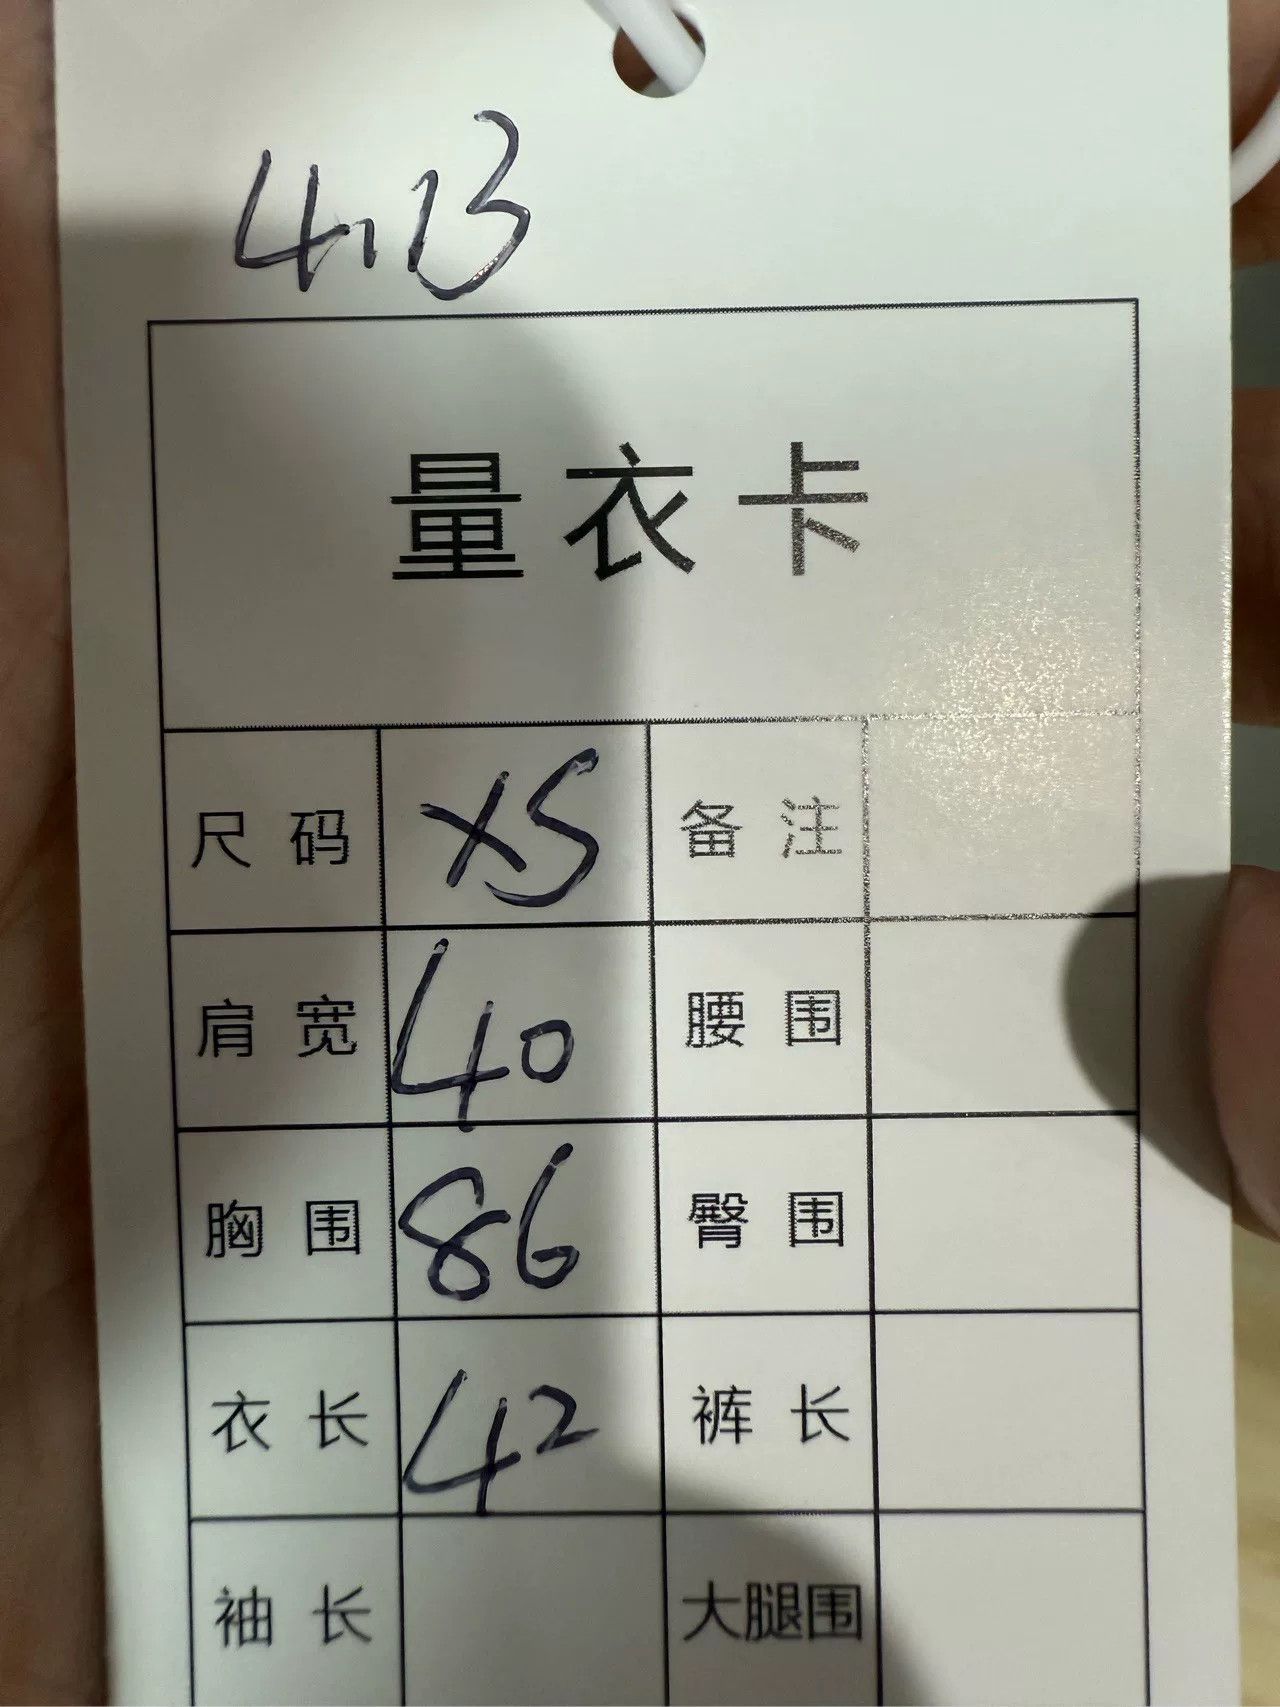 4.13
量衣卡
尺码 XS 备注
肩宽 40 腰围
胸围 86 臀围
衣长 42 裤长
袖长 大腿围